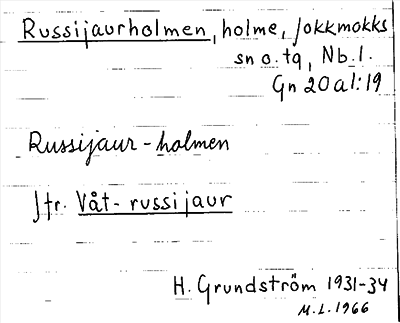 Russijaurholmen, holme, Jokkmokks
sn o. tg, Nb. l.
Gn 20 a 1:19
Russijaur-holmen
Jfr. Våt-russijaur
H. Grundström 1931-34
M.L. 1966